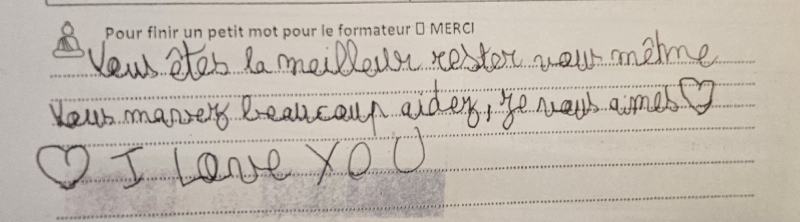 Pour finir un petit mot pour le formateur □ MERCI
Vous êtes la meilleur rester vous même
Vous mavez beaucoup aidez, je vous aimes ♡
♡ I Love YOU